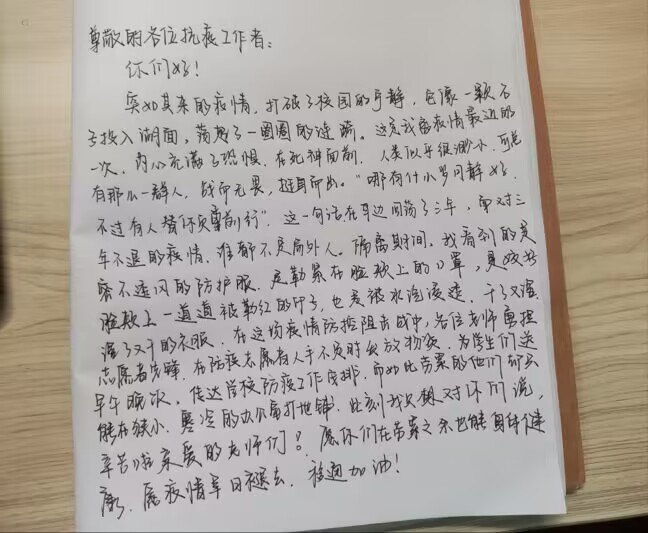 尊敬的各位抗疫工作者:
你们好!
突如其来的疫情,打破了校园的宁静,它像一颗石
子投入湖面,荡起了一圈圈的涟漪。这是我离疫情最近的
一次,内心充满了恐惧,在死神面前,人类似乎很渺小,可总
有那么一群人,战而无畏,挺身而出。"哪有什么岁月静好,
不过有人替你负重前行",这一句话在耳边回荡了三年,面对三
年不退的疫情,谁都不是局外人。隔离期间,我看到的是
密不透风的防护服,是勒累在脸颊上的口罩,是
脸颊上一道道被勒红的印子,也是被水渍浸透,干了又湿,
湿了又干的衣服。在这场疫情防控阻击战中,各位老师勇担
志愿者先锋,在防疫志愿者人手不足时发放物资,为学生们送
早午晚饭,传达学校防疫工作安排,而如此劳累的他们却只
能在狭小、寒冷的办公室打地铺,此刻我只想对你们说,
辛苦啦亲爱的老师们!愿你们在劳累之余也能身体健
康,愿疫情早日褪去,加油!